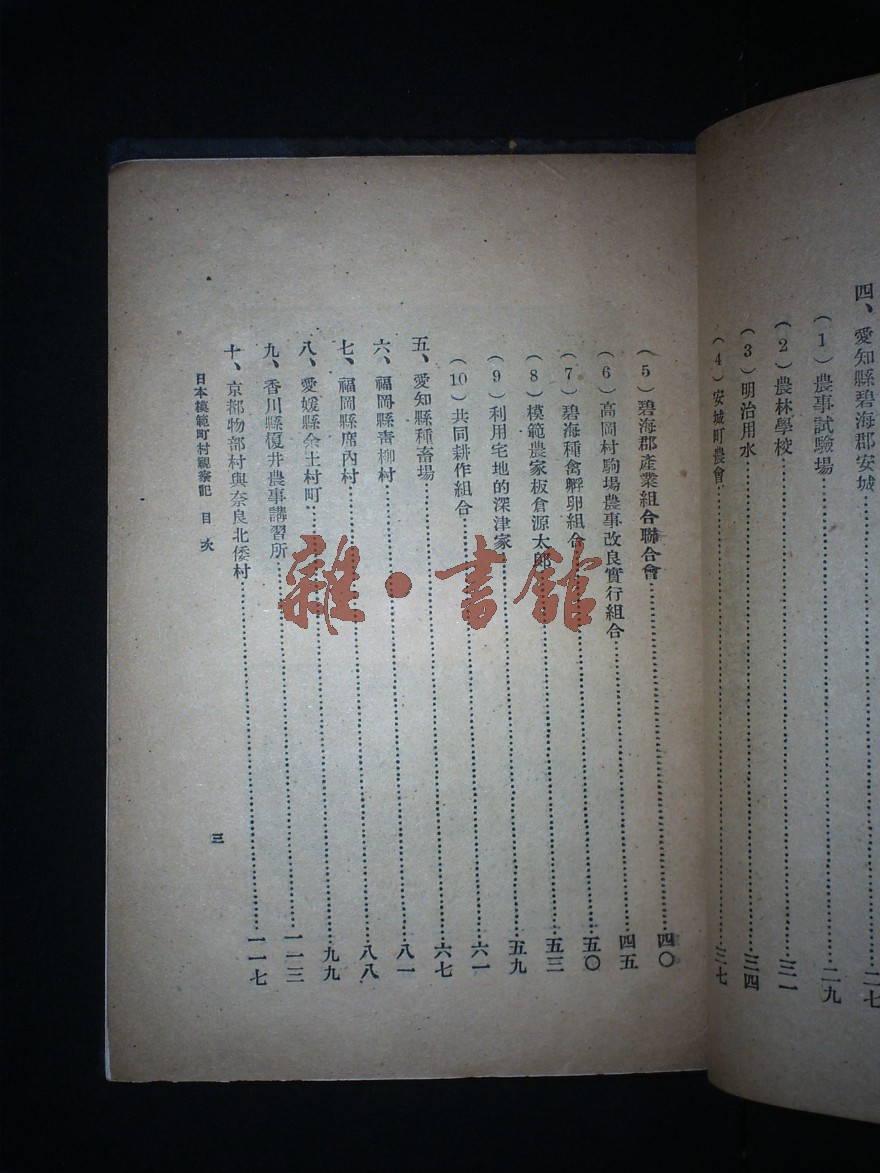 四、愛知縣碧海郡安城……二七
(1)農事試驗場……二九
(2)農林學校……三一
(3)明治用水……三四
(4)安城町農會……三七
(5)碧海郡產業組合聯合會……四〇
(6)高岡村駒場農事改良實行組合……四五
(7)碧海種禽孵卵組合……五〇
(8)模範農家板倉源太郎……五三
(9)利用宅地的深津家……五九
(10)共同耕作組合……六一
五、愛知縣種畜場……六七
六、福岡縣青柳村……八一
七、福岡縣席內村……八八
八、愛媛縣余土村町……九九
九、香川縣榎井農事講習所……一一三
十、京都物部村與奈良北倭村……一一七
日本模範町村觀察記 目次
三
雜·書館